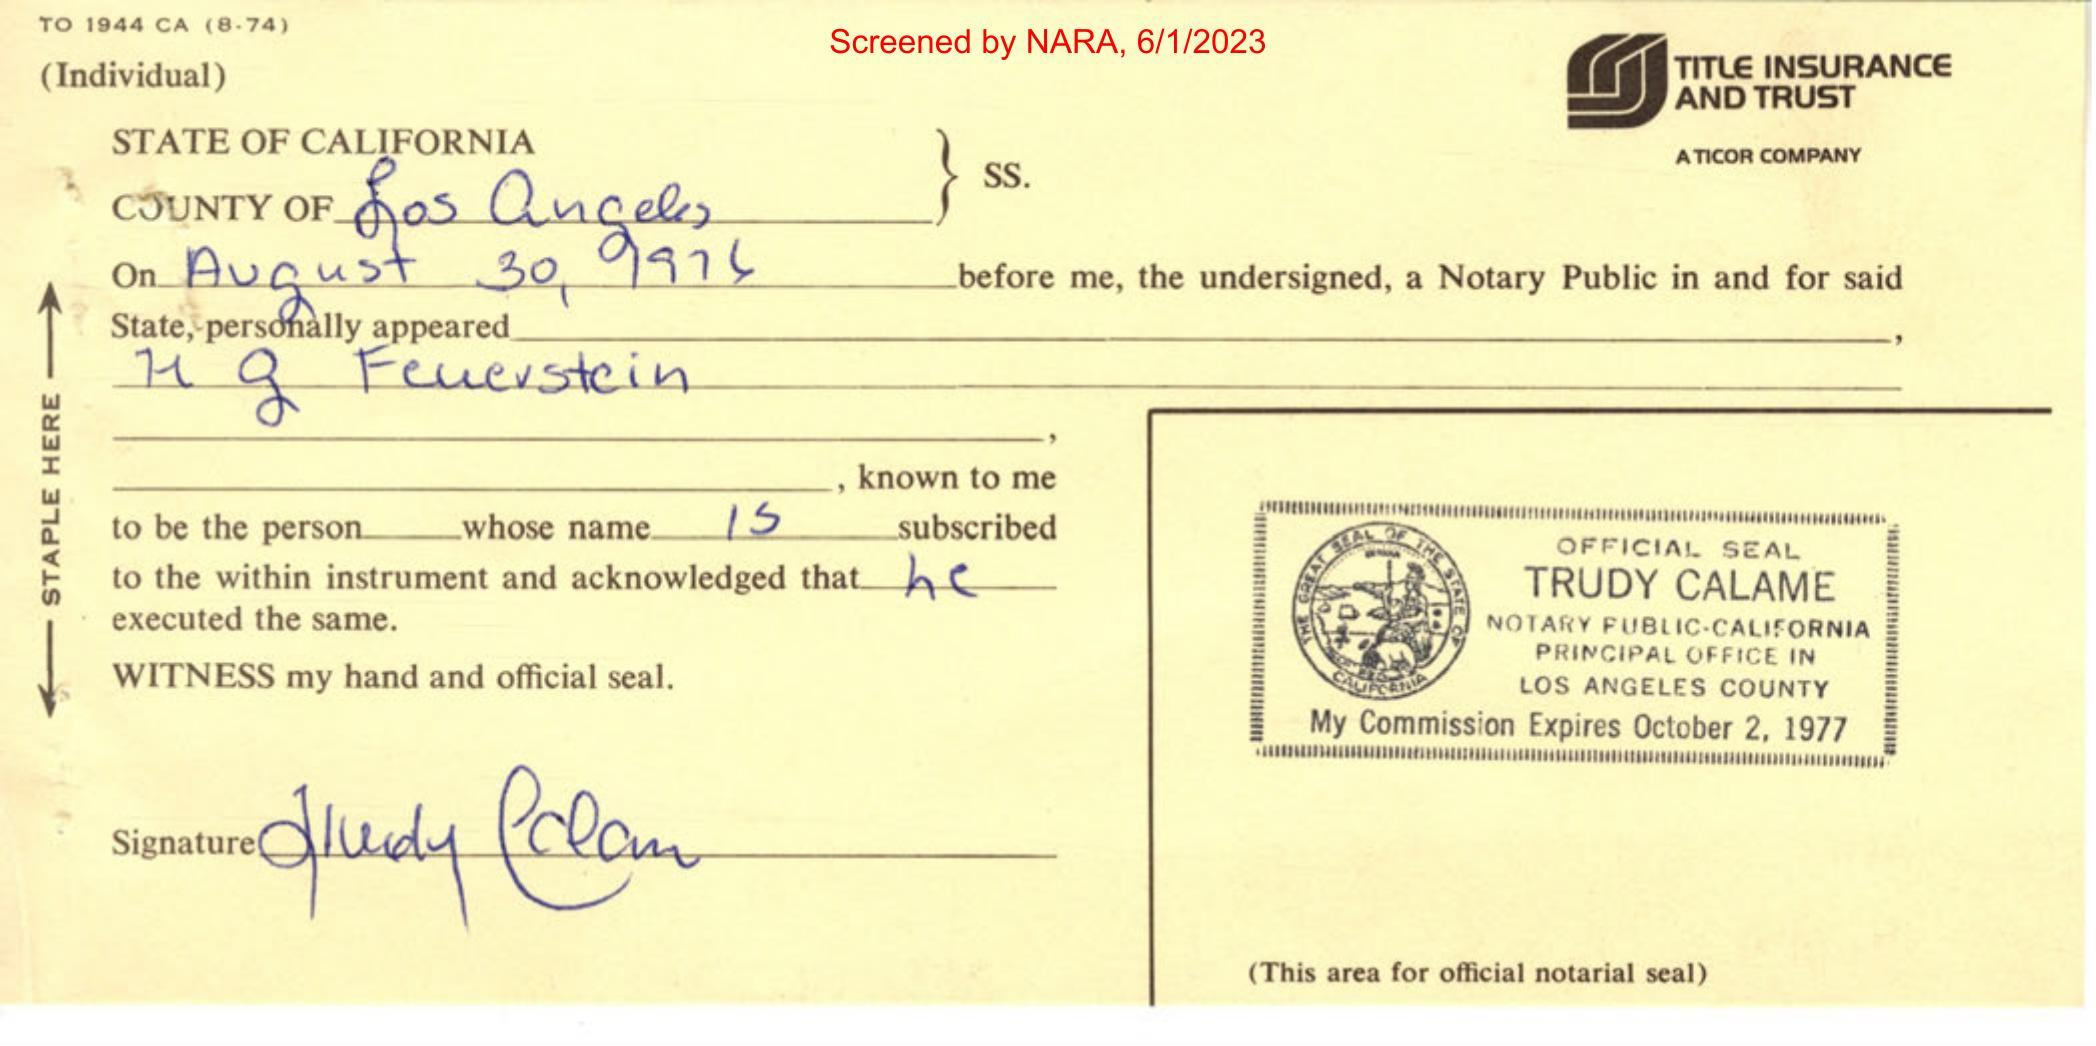 TO 1944 CA (8-74)
Screened by NARA, 6/1/2023
(Individual)
TITLE INSURANCE
AND TRUST
A TICOR COMPANY
STATE OF CALIFORNIA
COUNTY OF Los Angeles } SS.
On August 30, 1976 before me, the undersigned, a Notary Public in and for said
State, personally appeared ,
H G Feuerstein
,
, known to me
to be the person whose name is subscribed
to the within instrument and acknowledged that he
executed the same.
WITNESS my hand and official seal.
Signature Trudy Calam
STAPLE HERE
THE GREAT SEAL OF THE STATE OF CALIFORNIA
OFFICIAL SEAL
TRUDY CALAME
NOTARY PUBLIC-CALIFORNIA
PRINCIPAL OFFICE IN
LOS ANGELES COUNTY
My Commission Expires October 2, 1977
(This area for official notarial seal)